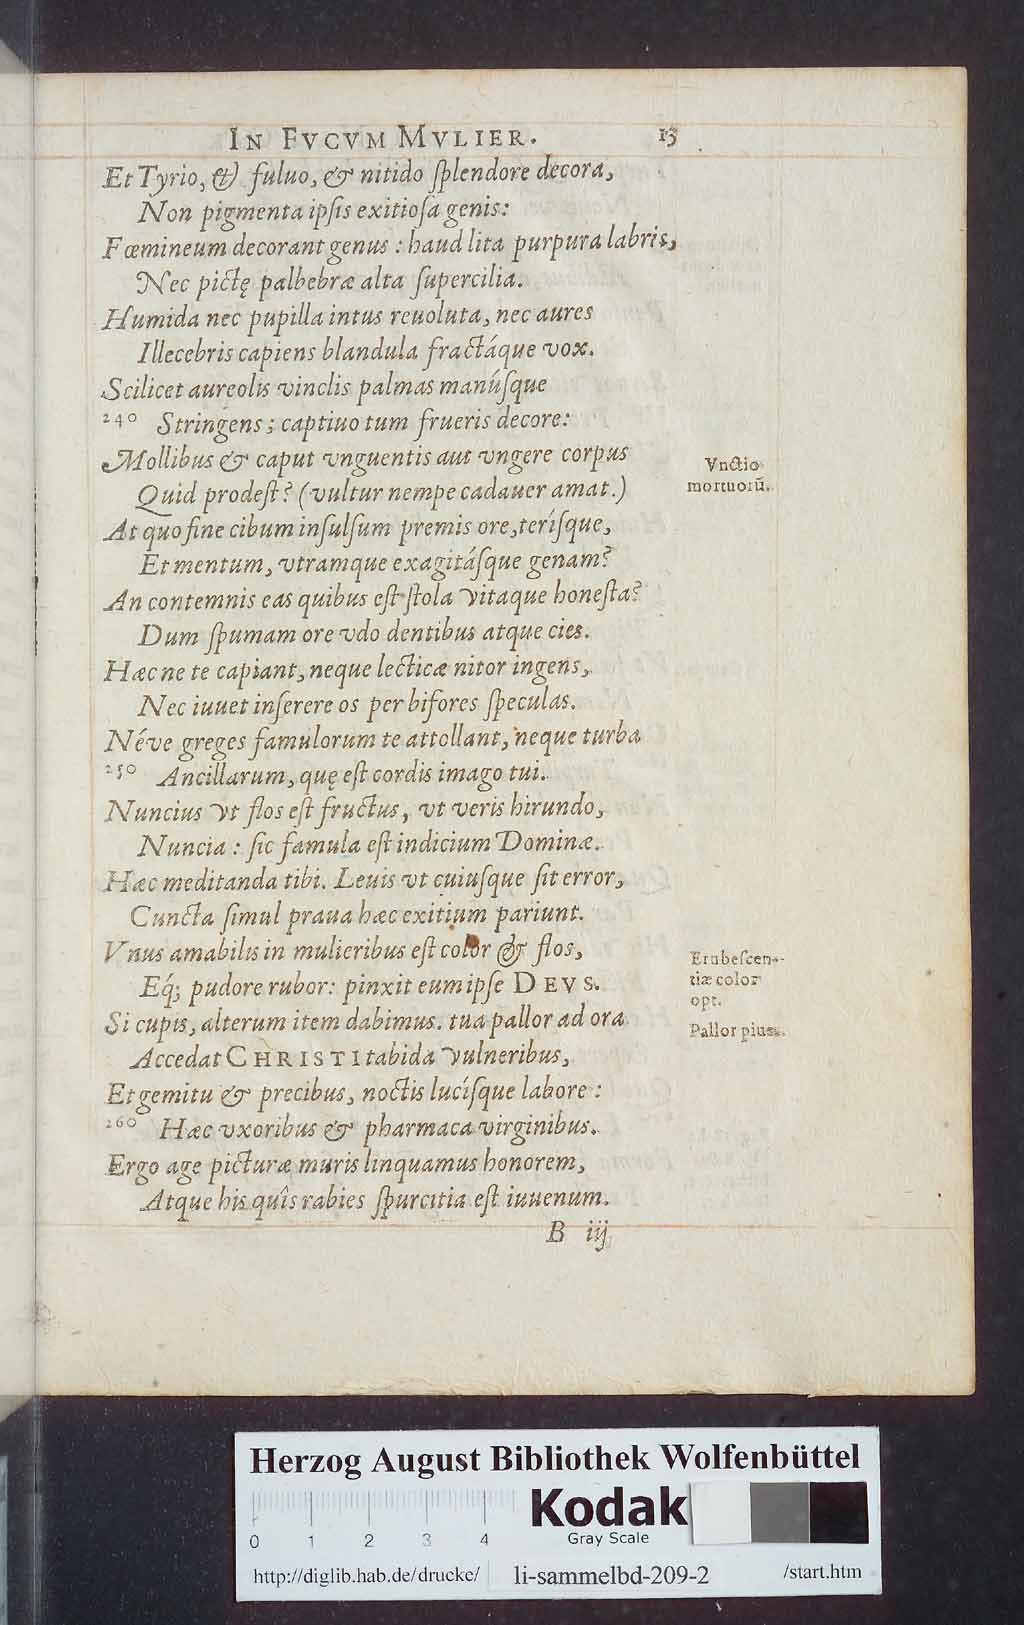 IN FVCVM MVLIER. 13
Et Tyrio, & fuluo, & nitido ſplendore decora,
Non pigmenta ipſis exitioſa genis:
Fœmineum decorant genus : haud lita purpura labris,
Nec pictę palbebræ alta ſupercilia.
Humida nec pupilla intus reuoluta, nec aures
Illecebris capiens blandula fractáque vox.
Scilicet aureolis vinclis palmas manúſque
240 Stringens ; captiuo tum frueris decore:
Mollibus & caput vnguentis aut vngere corpus
Vnctio
Quid prodeſt? (vultur nempe cadauer amat.)
mortuorū.
At quo fine cibum inſulſum premis ore, teríſque,
Et mentum, vtramque exagitáſque genam?
An contemnis eas quibus eſt ſtola vitaque honeſta?
Dum ſpumam ore vdo dentibus atque cies.
Hæc ne te capiant, neque lecticæ nitor ingens,
Nec iuuet inſerere os per bifores ſpeculas.
Néve greges famulorum te attollant, neque turba
250 Ancillarum, quę eſt cordis imago tui.
Nuncius vt flos eſt fructus, vt veris hirundo,
Nuncia : ſic famula eſt indicium Dominæ.
Hæc meditanda tibi. Leuis vt cuiuſque ſit error,
Cuncta ſimul praua hæc exitium pariunt.
Vnus amabilis in mulieribus eſt color & flos,
Erubeſcen-
tiæ color
opt.
Eq́; pudore rubor: pinxit eum ipſe DEVS.
Si cupis, alterum item dabimus. tua pallor ad ora
Pallor pius.
Accedat CHRISTI tabida vulneribus,
Et gemitu & precibus, noctis lucíſque labore :
260 Hæc vxoribus & pharmaca virginibus.
Ergo age picturæ muris linquamus honorem,
Atque his quîs rabies ſpurcitia eſt iuuenum.
B iij
Herzog August Bibliothek Wolfenbüttel
Kodak
Gray Scale
0 1 2 3 4
http://diglib.hab.de/drucke/ li-sammelbd-209-2 /start.htm